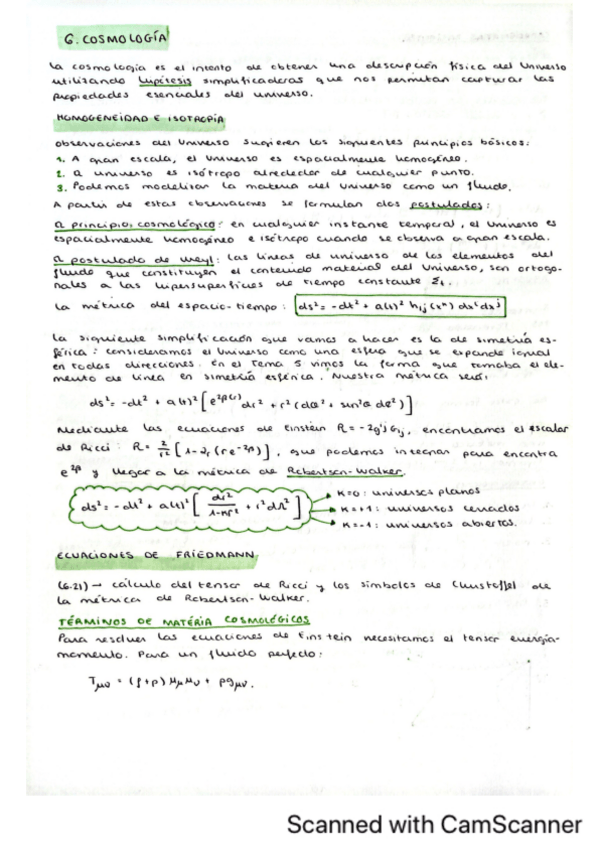 6. COSMOLOGÍA
La cosmología es el intento de obtener una descripción física del Universo
utilizando hipótesis simplificadoras que nos permitan capturar las
propiedades esenciales del universo.
HOMOGENEIDAD E ISOTROPÍA
Observaciones del Universo sugieren los siguientes principios básicos:
1. A gran escala, el Universo es espacialmente homogéneo.
2. El universo es isótropo alrededor de cualquier punto.
3. Podemos modelizar la materia del Universo como un fluido.
A partir de estas observaciones se formulan dos postulados:
El principio cosmológico: en cualquier instante temporal, el Universo es
espacialmente homogéneo e isótropo cuando se observa a gran escala.
El postulado de Weyl: las líneas de universo de los elementos del
fluido que constituyen el contenido material del Universo, son ortogo-
nales a las hipersuperficies de tiempo constante Σt.
La métrica del espacio-tiempo: ds² = -dt² + a(t)² hij(xᵏ) dxⁱdxʲ
La siguiente simplificación que vamos a hacer es la de simetría es-
férica: consideramos el Universo como una esfera que se expande igual
en todas direcciones. En el Tema 5 vimos la forma que tomaba el ele-
mento de línea en simetría esférica. Nuestra métrica será:
ds² = -dt² + a(t)² [e^2β(r) dr² + r²(dθ² + sin²θ dφ²)]
Mediante las ecuaciones de Einstein R = -2gⁱʲGij, encontramos el escalar
de Ricci: R = 2/r² [1 - ∂r(re^-2β)], que podemos integrar para encontra
e^2β y llegar a la métrica de Robertson-Walker.
ds² = -dt² + a(t)² [dr²/1-Kr² + r²dΩ²]
K=0: universos planos
K=+1: universos cerrados
K=-1: universos abiertos.
ECUACIONES DE FRIEDMANN
(6.21) → cálculo del tensor de Ricci y los símbolos de Christoffel de
la métrica de Robertson-Walker.
TÉRMINOS DE MATERIA COSMOLÓGICOS
Para resolver las ecuaciones de Einstein necesitamos el tensor energía-
momento. Para un fluido perfecto:
Tμν = (ρ+p) uμuν + pgμν.
Scanned with CamScanner